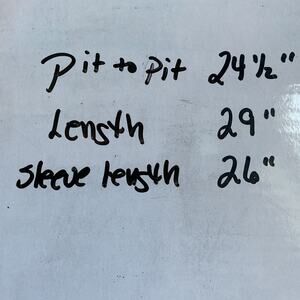 Pit to Pit 24 1/2"
Length 29"
Sleeve length 26"